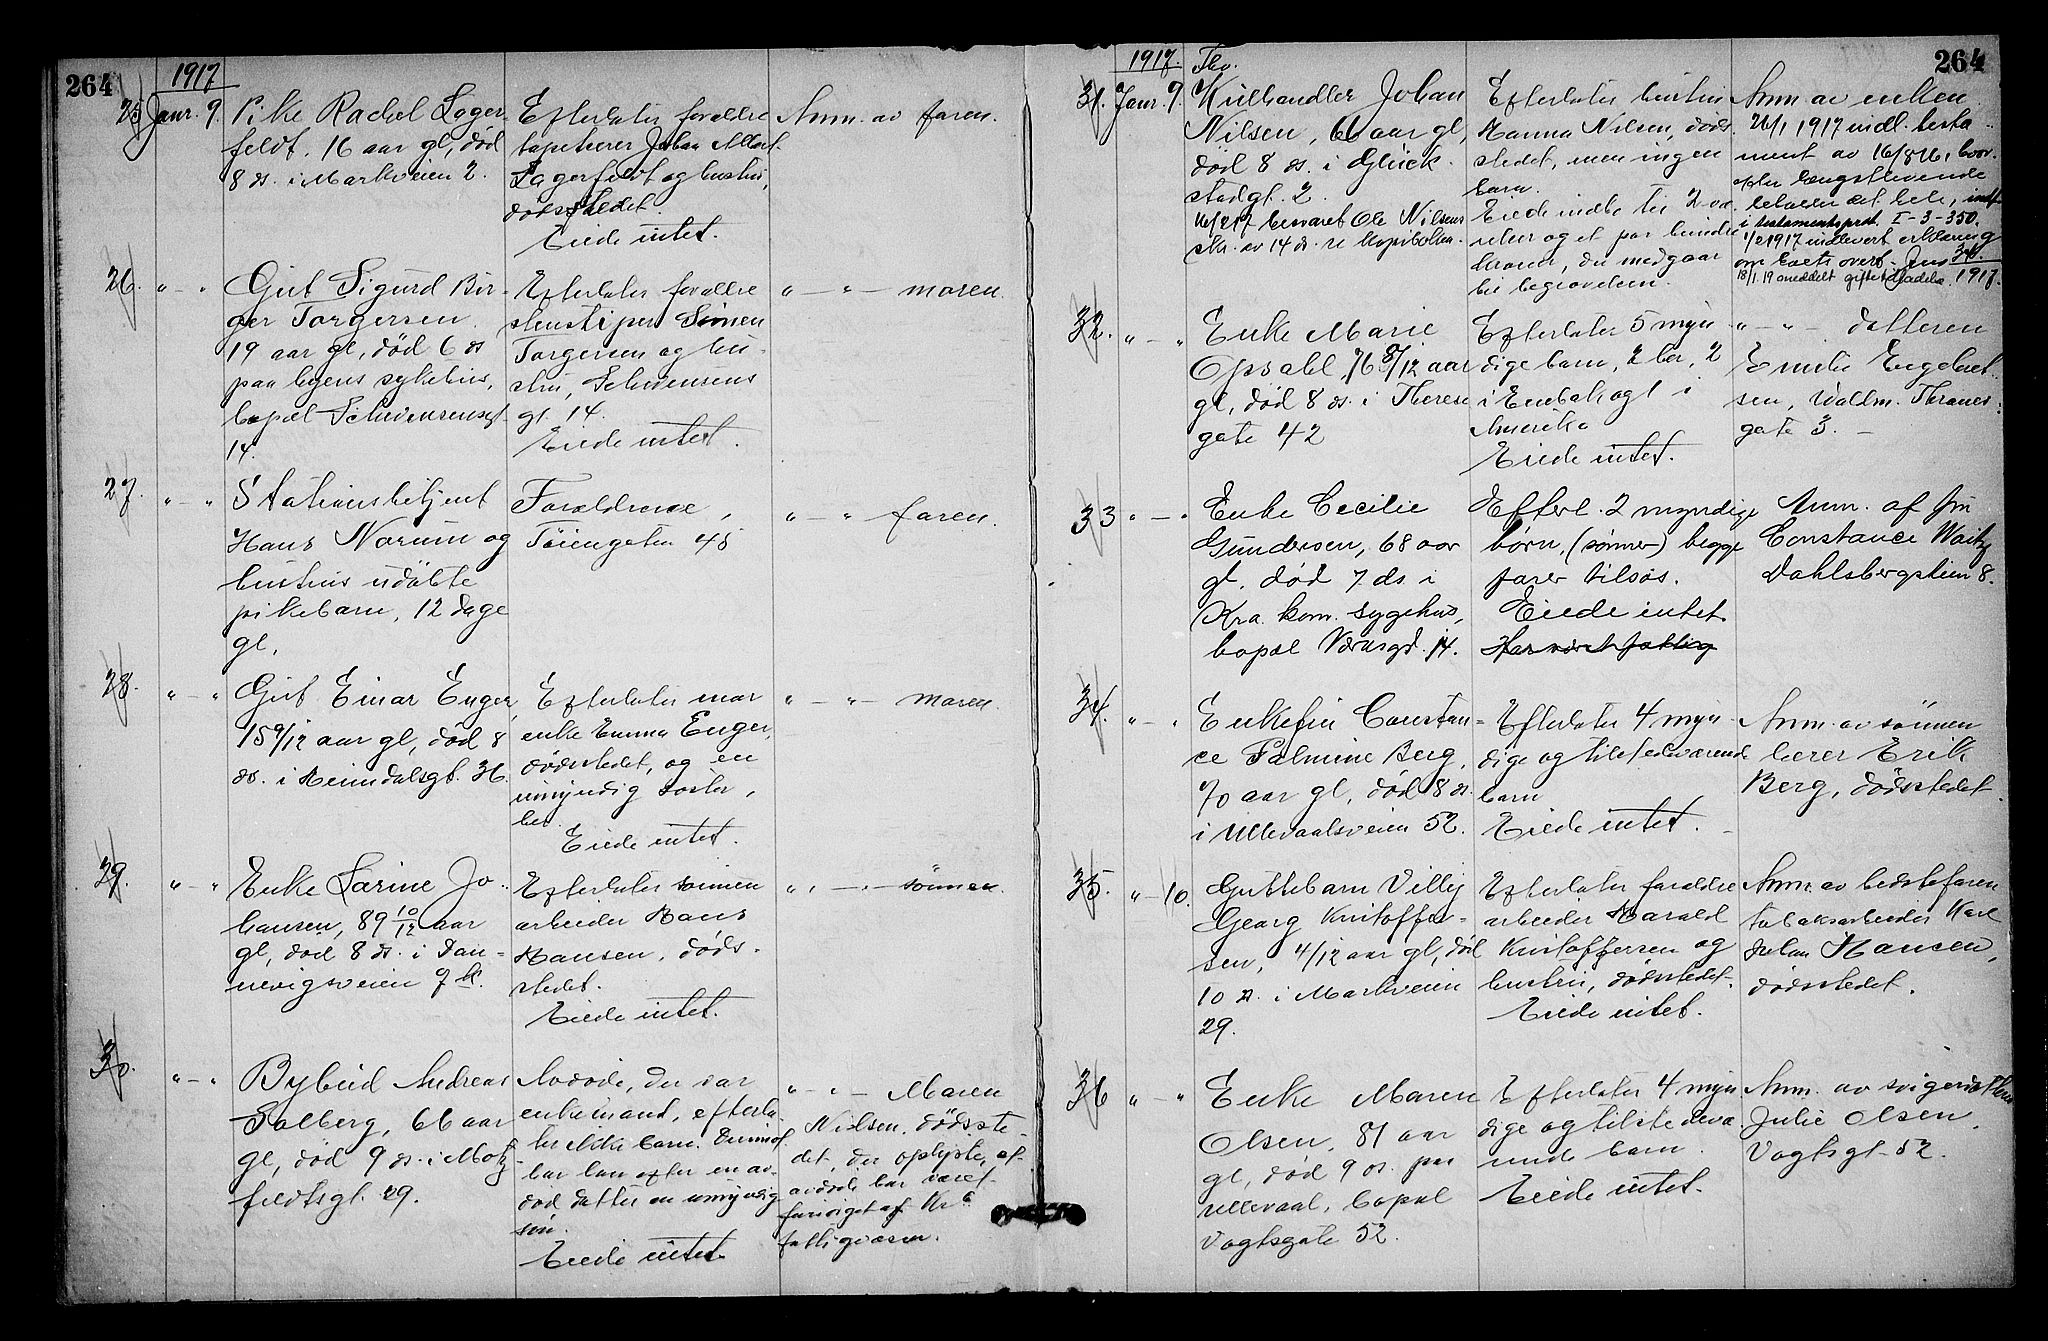 264
1917
25. Janr. 9. Pike Rachel Lager-
feldt, 16 aar gl, død
8 ds. i Markveien 2.
Efterlater forældre
tapetserer Johan Albert
Lagerfeldt og hustru,
dødsstedet.
Eiede intet.
Anm. av faren.
26. " - " Gut Sigurd Bir-
ger Torgersen
19 aar gl, død 6 ds
paa byens sykehus,
bopæl Schwensensgt.
14.
Efterlater forældre
stenstiper Simen
Torgersen og hu-
stru, Schwensens
gt. 14.
Eiede intet.
" - " - moren.
27. " - " Stationsbetjent
Hans Norum og
hustrus udøbte
pikebarn, 12 dage
gl.
Forældrene,
Tøiengaten 45
" - " faren.
28. " - " Gut Einar Enger,
15 9/12 aar gl, død 8
ds. i Heimdalsgt. 36.
Efterlater mor
enke Emma Enger,
dødsstedet, og en
umyndig søster,
her.
Eiede intet.
" - " - moren.
29. " - " Enke Larine Jo-
hansen, 89 10/12 aar
gl, død 8 ds. i Dan-
nevigsveien 7 b.
Efterlater sønnen
arbeider Hans
Hansen, døds-
stedet.
Eiede intet.
" - " - sønnen.
30. " - " Bybud Andreas
Solberg, 66 aar
gl, død 9 ds. i Motz-
feldtsgt. 29.
Avdøde, der var
enkemand, efterla-
ter ikke barn. Derimot
har han efter en av-
død datter en umyndig
søn.
Eiede intet.
" - " - Maren
Nielsen, dødsste-
det, der oplyste, at
avdøde har været
forsørget af Kr.a
fattigvæsen.
264
1917. Fhv.
31. Janr. 9. Kulhandler Johan
Nilsen, 61 aar gl,
død 8 ds. i Glück-
stadgt. 2.
16/2 17 besvaret Ole Nilsens
skr. av 14 ds. se kopiboken.
Efterlater hustru
Hanna Nilsen, døds-
stedet, men ingen
barn.
Eiede indbo til 2 væ-
relser og et par hundre
kroner, der medgaar
til begravelsen.
Anm. av enken
26/1 1917 indl. testa-
ment av 16/8 16, hvor-
efter længstlevende
beholder det hele, indf.
i testamentsprot. I-3-350.
1/2 1917 indlevert erklæring
om boets overt. Jnr 346
1917.
18/1 19 meddelt giftetilladelse
32. " - " Enke Marie
Opsahl, 76 8/12 aar
gl, død 8 ds. i Therese
gate 42
Efterlater 5 myn-
dige barn, 2 her, 2
i Enebak og 1 i
Amerika
Eiede intet.
" - " - datteren
Emilie Engebret-
sen, Waldm. Thranes-
gate 3. -
33 " - " Enke Cecilie
Gundersen, 68 aar
gl, død 7 ds. i
Kra. kom. sygehus,
bopæl Værksgd. 14.
Efterl. 2 myndige
børn, (sønner) begge
farer tilsøs.
Eiede intet.
Har været fattig
Anm. af fru
Constance Waitz
Dahlsbergstien 8.
34. " - " Enkefru Constan-
ce Palmine Berg,
70 aar gl, død 8 ds.
i Ullevaalsveien 52.
Efterlater 4 myn-
dige og tilstedeværende
barn
Eiede intet. -
Anm. av sønnen
lærer Erik
Berg, dødsstedet.
35. " - 10. Guttebarn Villy
Georg Kristoffer-
sen, 4/12 aar gl, død
10 ds. i Markveien
29.
Efterlater forældre
arbeider Harald
Kristoffersen og
hustru, dødsstedet.
Eiede intet.
Anm. av bedstefaren
tobaksarbeider Karl
Johan Hansen,
dødsstedet.
36 " - " Enke Maren
Olsen, 81 aar
gl, død 9 ds. paa
Ullevaal, bopæl
Vogtsgate 52.
Efterlater 4 myn-
dige og tilstedevæ-
rende barn.
Eiede intet.
Anm. av svigerdatteren
Julie Olsen,
Vogtsgt. 52.